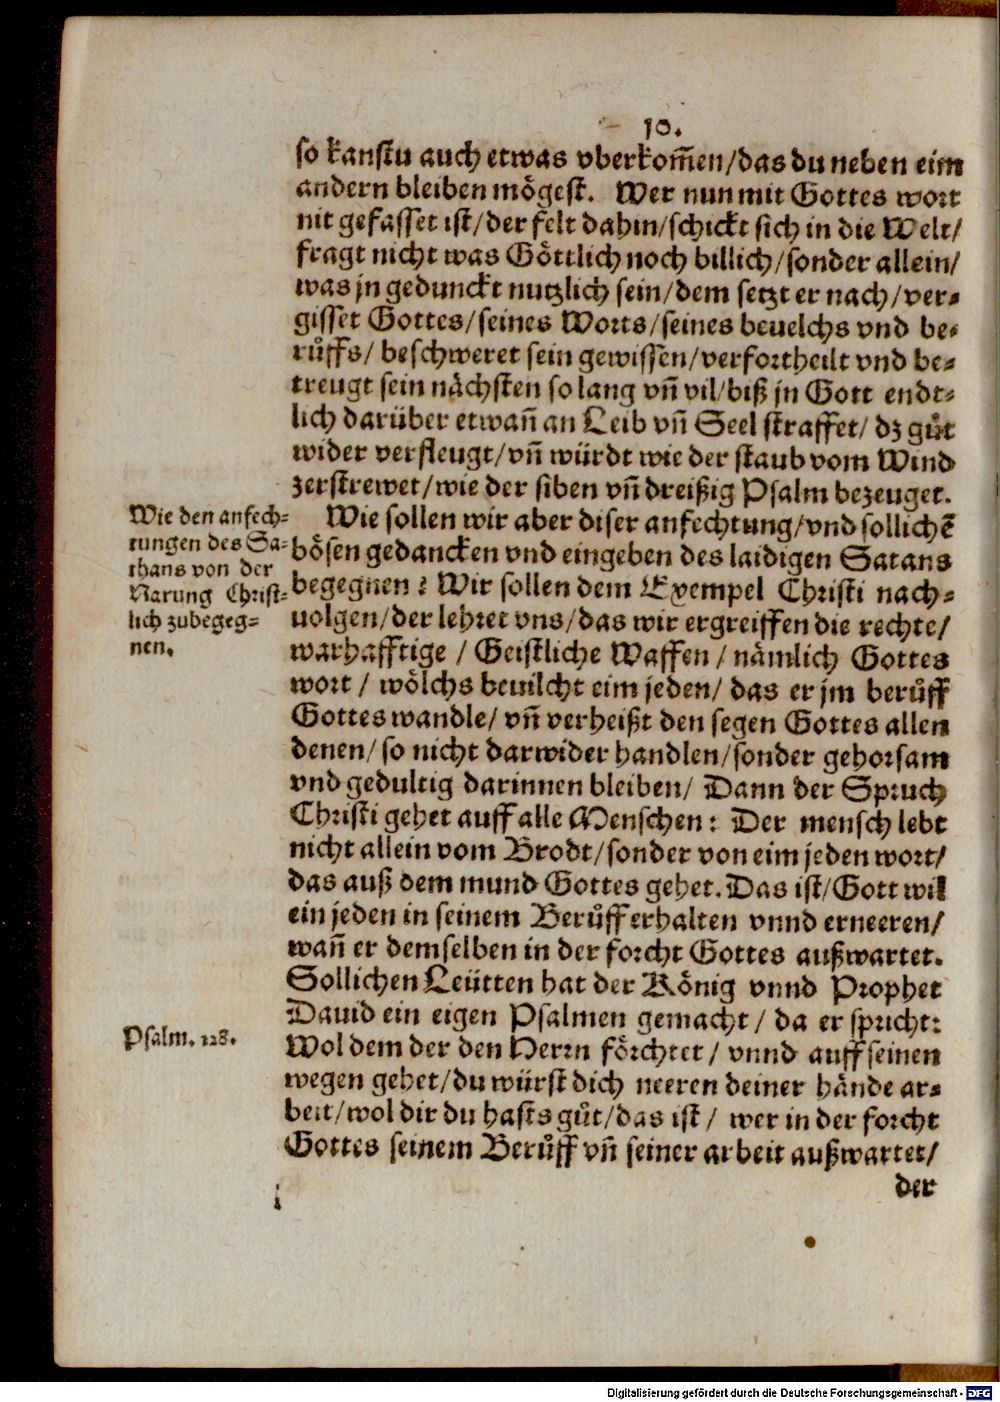 10.
so kanstu auch etwas vberkom̃en/das du neben eim
andern bleiben mögest. Wer nun mit Gottes wort
nit gefasset ist/der felt dahin/schickt sich in die Welt/
fragt nicht was Göttlich noch billich/sonder allein/
was jn gedunckt nutzlich sein/dem setzt er nach/ver-
gisset Gottes/seines Worts/seines beuelchs vnd be-
růffs/ beschweret sein gewissen/verfortheilt vnd be-
treugt sein nächsten so lang vn̄ vil/biß jn Gott endt-
lich darüber etwan̄ an Leib vn̄ Seel straffet/ dz gůt
wider verfleugt/vn̄ würdt wie der staub vom Wind
zerstrewet/wie der siben vn̄ dreißig Psalm bezeuget.
Wie den anfech-
tungen des Sa-
thans von der
Narung Christ-
lich zubegeg-
nen.
Wie sollen wir aber diser anfechtung/vnd sollichē
bösen gedancken vnd eingeben des laidigen Satans
begegnen? Wir sollen dem Exempel Christi nach-
uolgen/der lehret vns/das wir ergreiffen die rechte/
warhafftige / Geistliche Waffen / nämlich Gottes
wort / wölchs beuilcht eim jeden/ das er jm berůff
Gottes wandle/ vn̄ verheißt den segen Gottes allen
denen/ so nicht darwider handlen/sonder gehorsam
vnd gedultig darinnen bleiben/ Dann der Spruch
Christi gehet auff alle Menschen: Der mensch lebt
nicht allein vom Brodt/sonder von eim jeden wort/
das auß dem mund Gottes gehet. Das ist/Gott wil
ein jeden in seinem Berůff erhalten vnnd erneeren/
wan̄ er demselben in der forcht Gottes außwartet.
Sollichen Leütten hat der König vnnd Prophet
Dauid ein eigen Psalmen gemacht / da er spricht:
Psalm. 128.
Wol dem der den Herrn förchtet / vnnd auff seinen
wegen gehet/du würst dich neeren deiner hände ar-
beit/wol dir du hasts gůt/das ist / wer in der forcht
Gottes seinem Berůff vn̄ seiner arbeit außwartet/
der
Digitalisierung gefördert durch die Deutsche Forschungsgemeinschaft - DFG